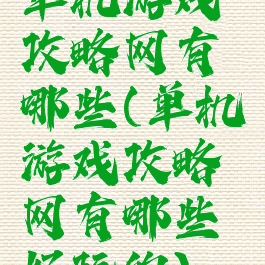 单机游戏
攻略网有
哪些(单机
游戏攻略
网有哪些
好玩的)